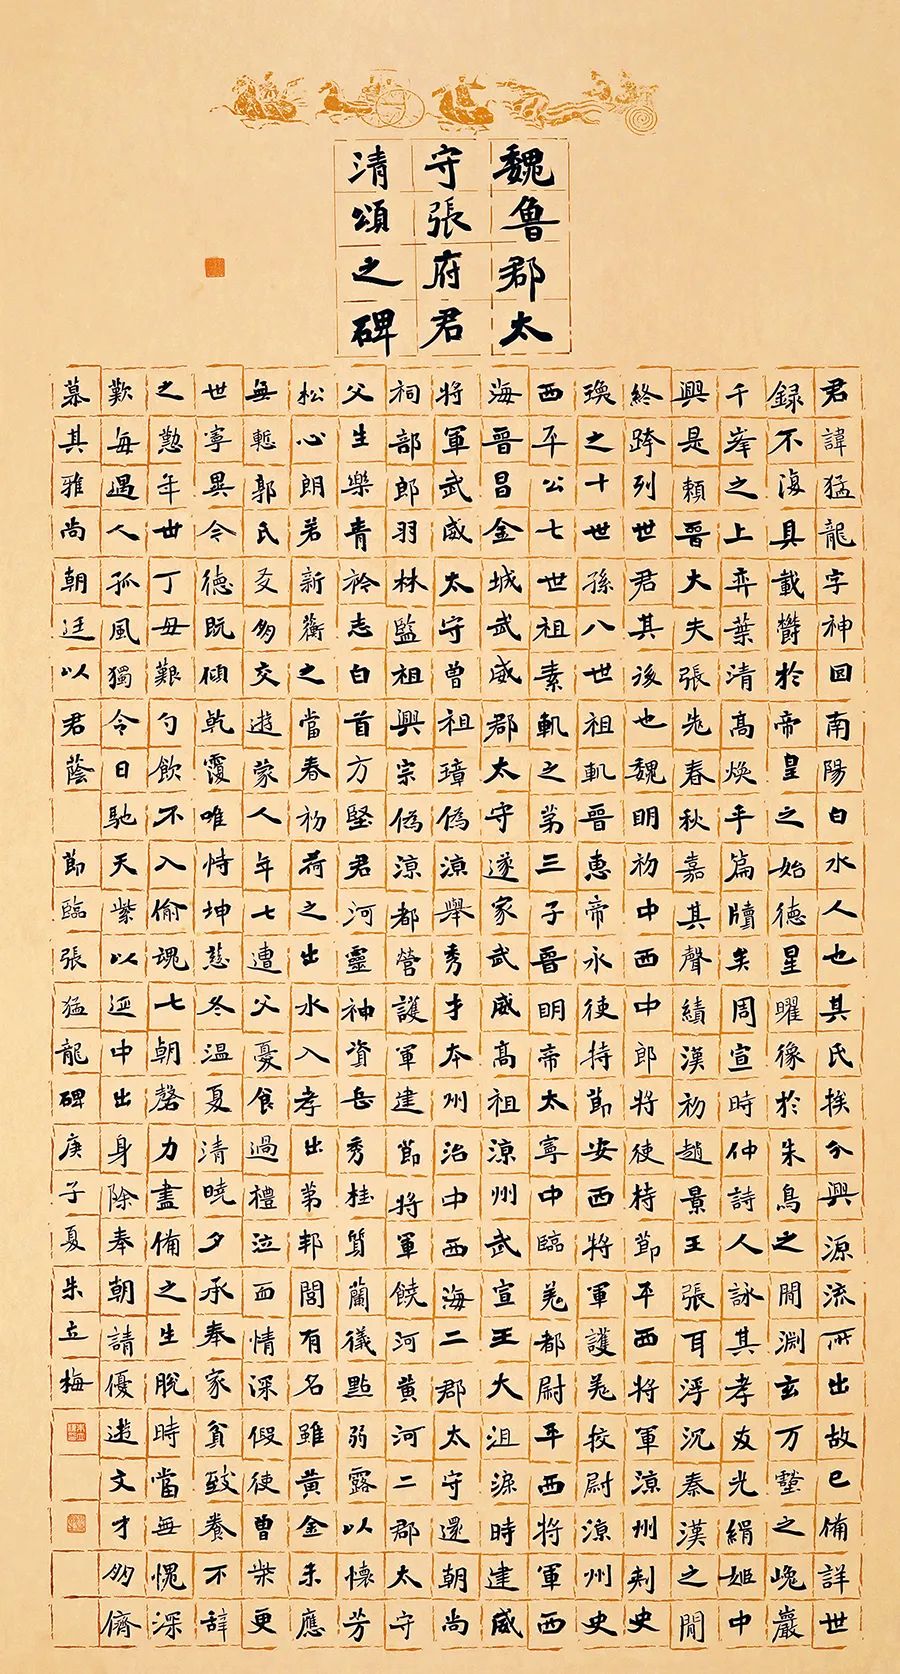 魏魯郡太
守張府君
清頌之碑
君諱猛龍字神囙南陽白水人也其氏挨分興源流所出故已備詳世
録不復具載欝於帝皇之始德星曜像於朱鳥之閒淵玄万壑之嵬巖
千峯之上弈葉清高煥乎篇牘矣周宣時仲詩人詠其孝友光緝姬中
興是賴晉大夫張老春秋嘉其聲績漢初趙景王張耳浮沉秦漢之閒
終跨列世君其後也魏明初中西中郎將使持節平西將軍涼州刺史
瑍之十世孫八世祖軌晉惠帝永使持節安西將軍護羌校尉涼州史
西平公七世祖素軌之第三子晉明帝太寧中臨羌都尉平西將軍西
海晉昌金城武威郡太守遂家武威高祖涼州武宣王大沮渠時建威
將軍武威太守曾祖璋偽涼舉秀才本州治中西海二郡太守還朝尚
祠部郎羽林監祖興宗偽涼都營護軍建節將軍饒河黄河二郡太守
父生樂青衿志白首方堅君河靈神資岳秀桂質蘭儀點弱露以懷芳
松心朗若新蘅之當春初荷之出水入孝出第邦閭有名雖黄金未應
無慙郭氏友朋交遊蒙人年七遭父憂食過禮泣而情深假使曾柴更
世寧異今德既傾乾覆唯恃坤慈冬温夏清曉夕承奉家貧致養不辭
之懃年丗丁母艱勺飲不入偷魂七朝磬力盡備之生脫時當無愧深
歎每遇人孤風獨令日馳天紫以延中出身除奉朝請優遊文才朋儕
慕其雅尚朝廷以君蔭 節臨張猛龍碑庚子夏朱立梅